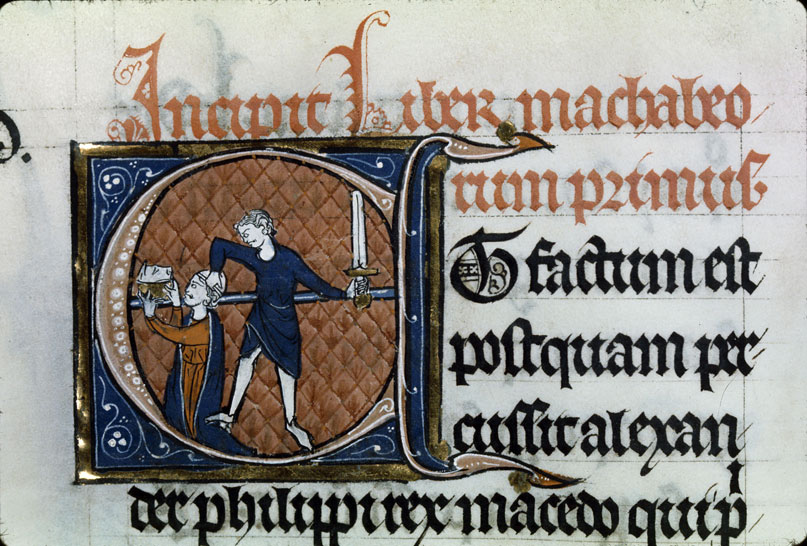 Incipit Liber machabeo
rum primus
E T factum est
postquam per
cussit alexan
der philippi rex macedo qui p
i